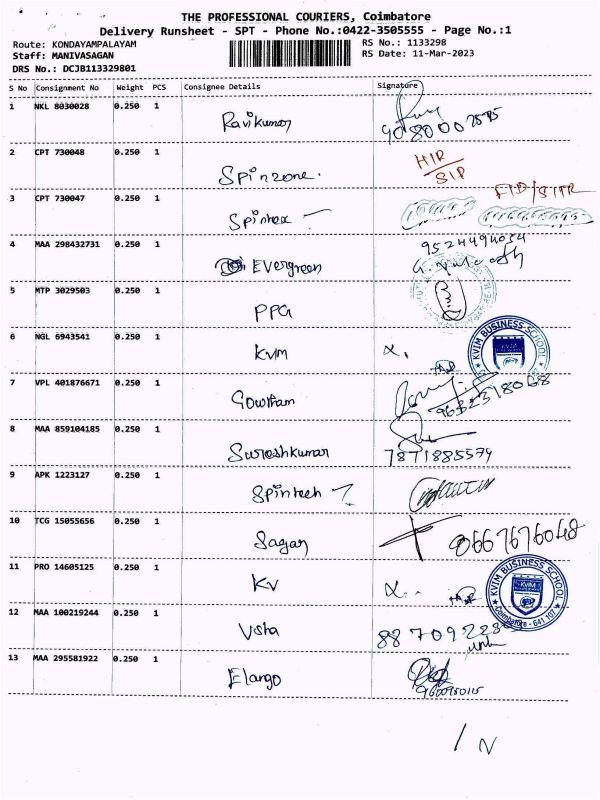 THE PROFESSIONAL COURIERS, Coimbatore
Delivery Runsheet - SPT - Phone No.:0422-3505555 - Page No.:1
Route: KONDAYAMPALAYAM
RS No.: 1133298
Staff: MANIVASAGAN
RS Date: 11-Mar-2023
DRS No.: DCJB113329801
S No Consignment No Weight PCS Consignee Details Signature
1 NKL 8030028 0.250 1 Ravikumar
2 CPT 730048 0.250 1 Spinzone.
3 CPT 730047 0.250 1 Spintex
4 MAA 298432731 0.250 1 Evergreen
5 MTP 3029503 0.250 1 PPG
6 NGL 6943541 0.250 1 KVIM
KVIM BUSINESS SCHOOL
7 VPL 401876671 0.250 1 Gowtham
8 MAA 859104185 0.250 1 Sureshkumar 7871885579
9 APK 1223127 0.250 1 Spintech
10 TCG 15055656 0.250 1 Sagar
11 PRO 14605125 0.250 1 KV
KVIM BUSINESS SCHOOL
KVIM
Coimbatore - 641 107
12 MAA 100219244 0.250 1 Vista
13 MAA 295581922 0.250 1 Elango